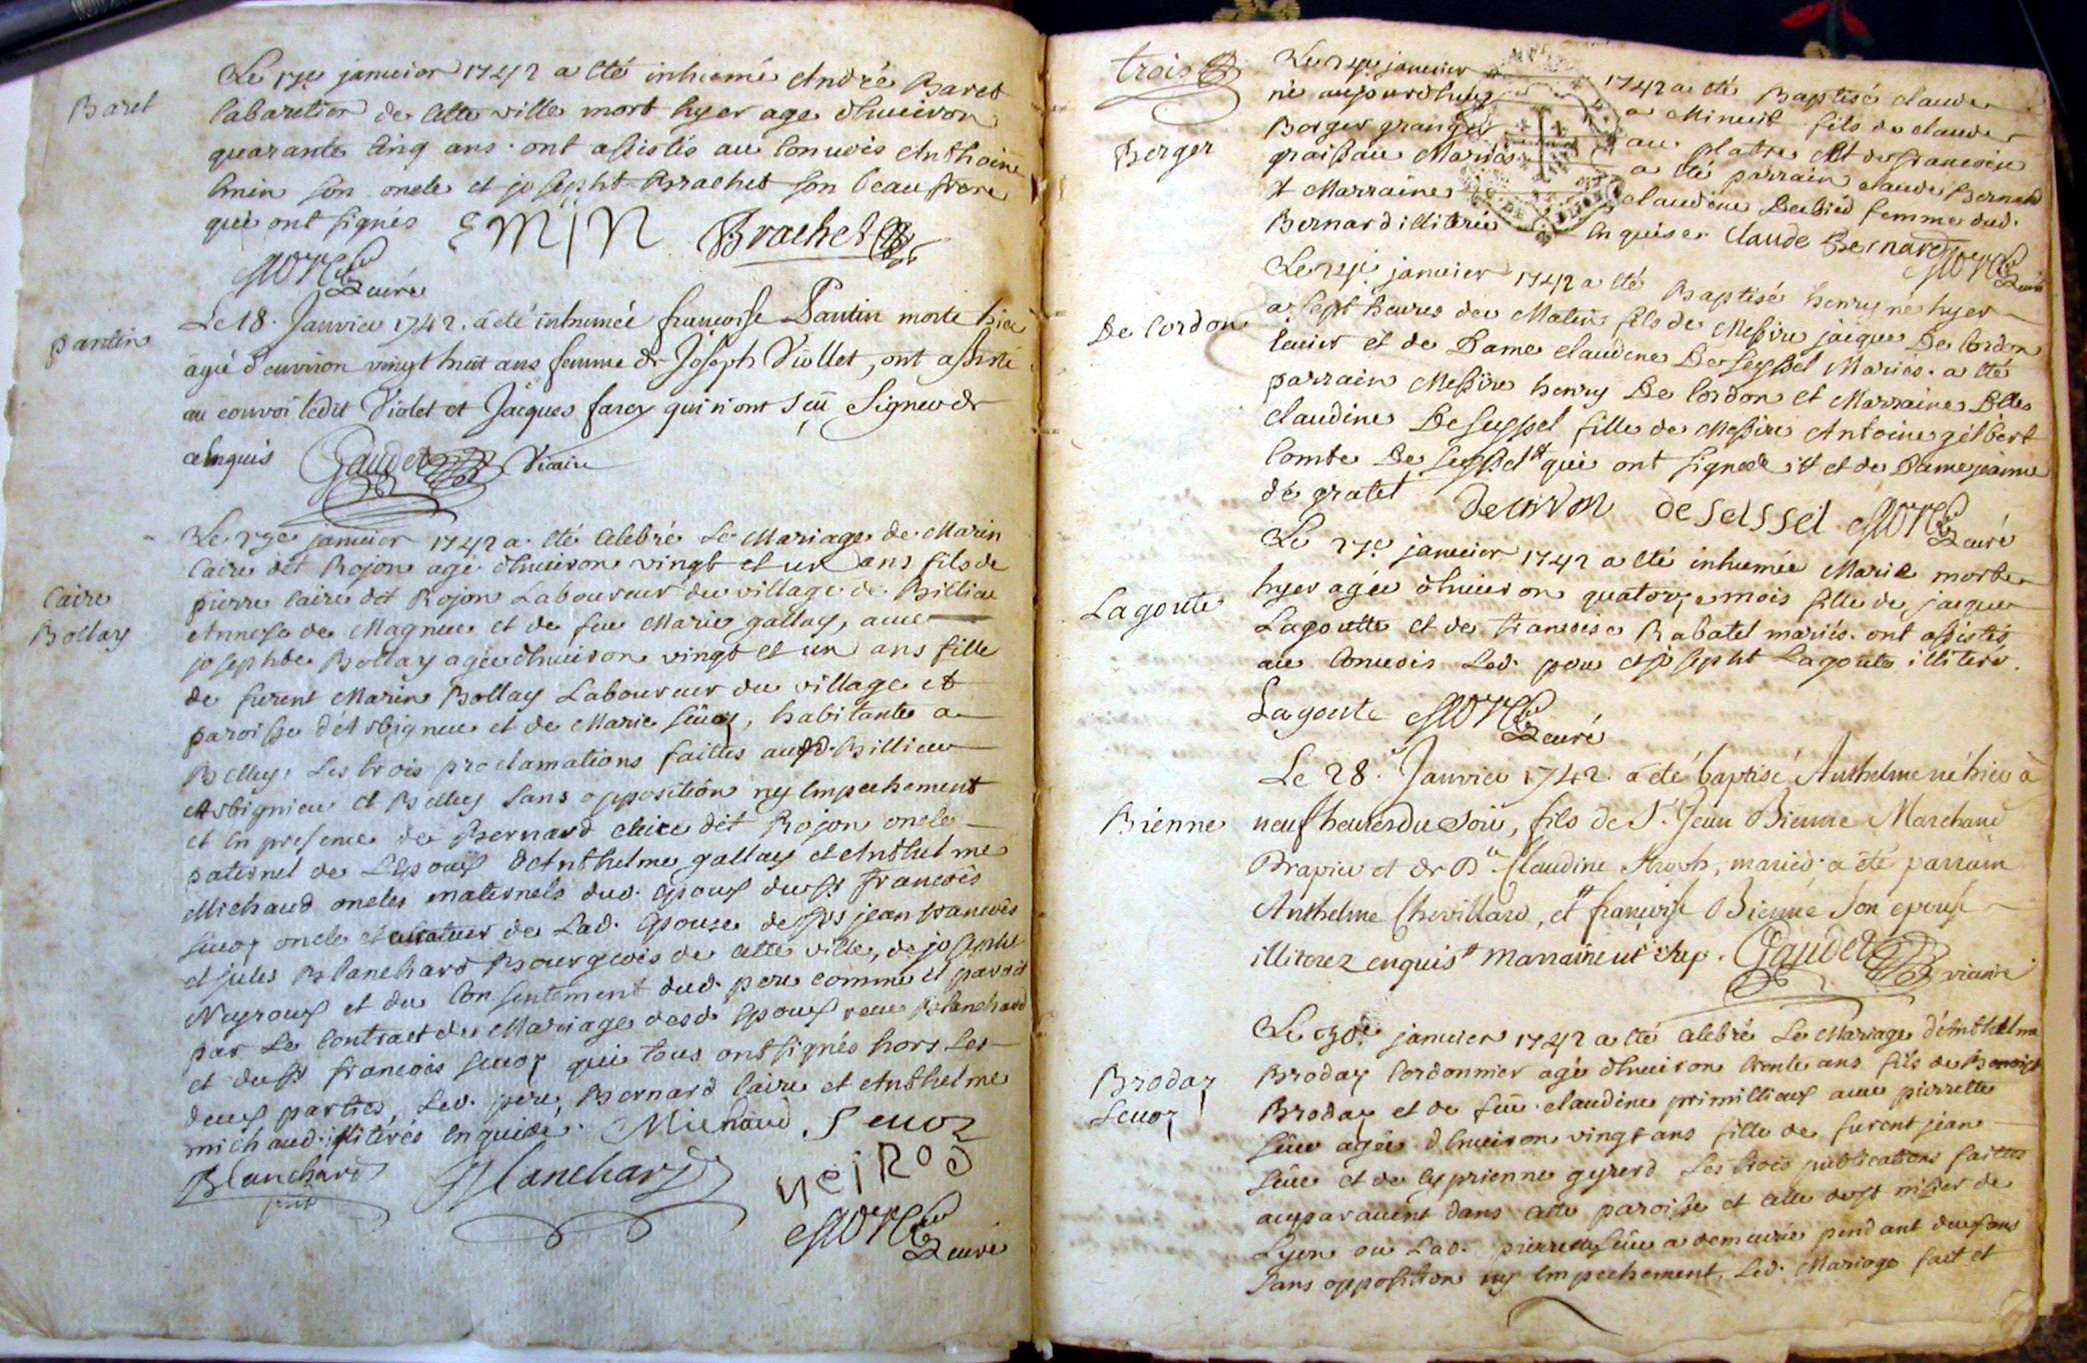 Baret
Le 17e janvier 1742 a eté inhumé André Baret
Cabaretier de cette ville mort hyer age d'hnuiron
quarante cinq ans. ont assistés au Convois Anthoine
Emin son oncle et josepht Brachet son beau frere
qui ont signés EMIN Brachet
curé
pantin
Le 18. Janvier 1742. a été inhumée francoise Pantin morte hier
agée d'environ vingt huit ans femme de Joseph Viollet, ont assisté
au convoi ledit Violet et Jacques farcy qui n'ont sçu signer de
ce enquis Gaudet Vicaire
Caire
Bollay
Le janvier 1742 a eté Celebré Le Mariage de Marin
Caire dit Rojon agé d'hnuiron vingt et un ans fils de
pierre Caire dit Rojon Laboureur du village de Billieu
Annexe de Magnieu et de feue Marie gallay, avec
josephte Bollay agée d'hnuiron vingt et un ans fille
de furent Marin Bollay Laboureur du village et
paroisse d'Arbignieu et de Marie , habitante a
Belley, Les trois proclamations faittes aud. Billieu
Arbignieu et Belley sans opposition ny Empechement
et en presence de Bernard Caire dit Rojon oncle
paternel de L'Epoux d'Anthelme gallay et Anthelme
Michaud oncles maternels dud. Epoux du sr francois
oncle et curateur de Lad. Epouse de srs jean francois
et jules Blanchard Bourgeois de cette ville, de joseph
Neyroux et du Consentement dud. pere comme il paroit
par Le Contract de Mariage desd Epoux receu Blanchard
et du sr francois Sevoz qui tous ont signés hors Les
deux parties, Led. pere, Bernard Caire et Anthelme
michaud illitérés enquisés. Michaud Sevoz
Blanchard Blanchard NeiRod
curé
trois
Berger
Le janvier 1742 a eté Baptisé claude
né aujourdhuy a Minuit fils de claude
Berger granger au platre et de francoise
graissau Mariés a eté parrain claude Bernard
et Marraine claudine femme dud.
Bernard illiterée Enquise. Claude Bernard
curé
De Cordon
Le janvier 1742 a eté Baptisé henry né hyer
a sept heures du Matin fils de Messire jacque De Cordon
Ecuier et de Dame claudine De Seyssel Mariés. a eté
parrain Messire henry De Cordon et Marraine Dlle
claudine De Seyssel fille de Messire Antoine gelbert
Comte De Seyssel qui ont signé et de Dame jeanne
de gratet DeCordon DeSeissel
curé
Lagoute
Le 27e janvier 1742 a eté inhumée Marie morte
hyer agée d'hnuiron quatorze mois fille de jacque
Lagoutte et de francoise Rabatel mariés. ont assistés
au Convois Led. pere et josepht Lagoute illiteré.
Lagoute curé
Bienne
Le 28. Janvier 1742. a été baptisé Anthelme né hier à
neuf heures du soir, fils de Sr. Jean Bienne Marchand
Drapier et de Dlle. Claudine , mariés. a été parrain
Anthelme Chevillard, et francoise Bienne son epouse
illiterez enquis Marraine Gaudet
vicaire
Broday
Sevoz
Le 30e janvier 1742 a eté Celebré Le Mariage d'Anthelme
Broday Cordonnier agé d'hnuiron trente ans fils de Benoist
Broday et de feüe claudine primillieux avec pierrette
agée d'hnuiron vingt ans fille de furent jean
et de Cyprienne geyrerd Les trois publications faittes
auparavant dans cette paroisse et celle de st nisier de
Lyon ou Lad. pierrette a demeurée pendant deux ans
sans opposition ny Empechement, Led. Mariage fait et